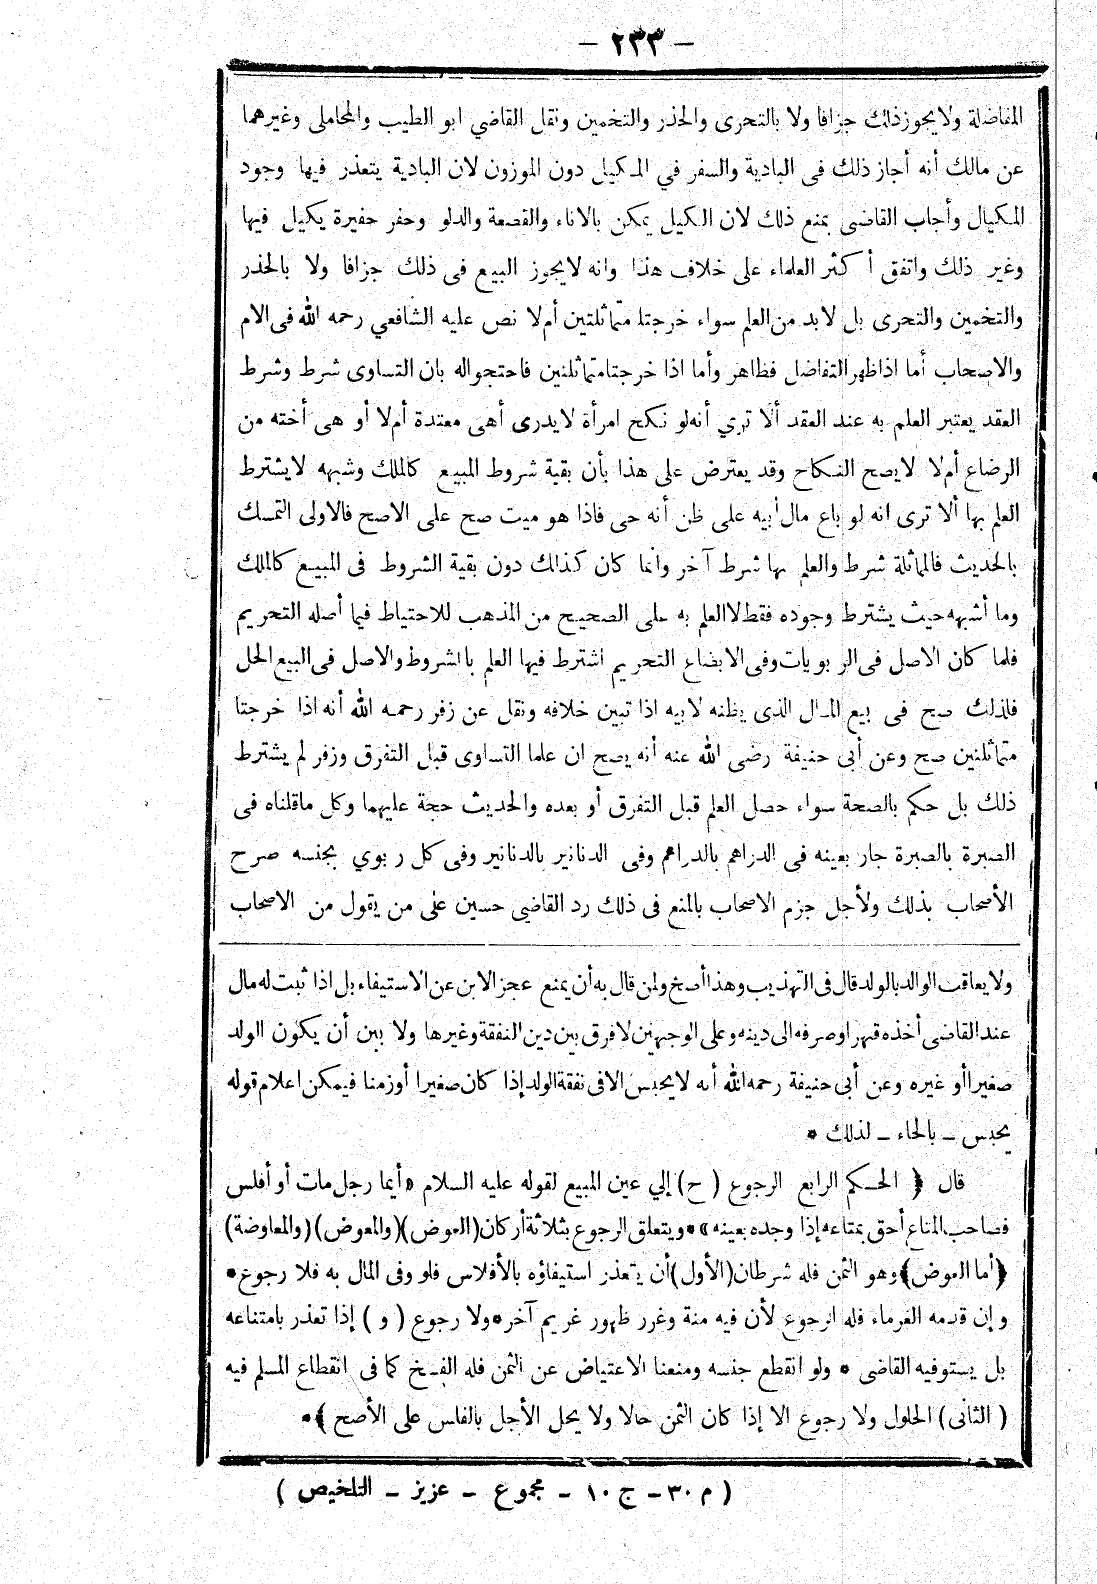 - ٢٣٣ -
المفاضلة ولايجوزذلك جزافا ولا بالتحرى والحذر والتخمين ونقل القاضي ابو الطيب والمحاملى وغيرهما
عن مالك أنه أجاز ذلك فى البادية والسفر في المكيل دون الموزون لان البادية يتعذر فيها وجود
المكيال وأجاب القاضى بمنع ذلك لان الكيل يمكن بالاناء والقصعة والدلو وحفر حفيرة يكيل فيها
وغير ذلك واتفق أكثر العلماء على خلاف هذا وانه لايجوز البيع فى ذلك جزافا ولا بالحذر
والتخمين والتحرى بل لابد من العلم سواء خرجتا متماثلتين أم لا نص عليه الشافعي رحمه الله فى الام
والاصحاب أما اذاظهر التفاضل فظاهر وأما اذا خرجتا متماثلتين فاحتجواله بان التساوى شرط وشرط
العقد يعتبر العلم به عند العقد ألا تري أنه لو نكح امرأة لايدرى أهى معتدة أم لا أو هى أخته من
الرضاع أم لا لايصح النكاح وقد يعترض على هذا بأن بقية شروط المبيع كالملك وشبهه لايشترط
العلم بها ألا ترى انه لو باع مال أبيه على ظن أنه حى فاذا هو ميت صح على الاصح فالاولى التمسك
بالحديث فالمماثلة شرط والعلم بها شرط آخر وانما كان كذلك دون بقية الشروط فى المبيع كالملك
وما أشبهه حيث يشترط وجوده فقط لا العلم به على الصحيح من المذهب للاحتياط فيما أصله التحريم
فلما كان الاصل فى الربويات وفى الابضاع التحريم اشترط فيها العلم بالشروط والاصل فى البيع الحل
فلذلك صح فى بيع المال الذى يظنه لابيه اذا تبين خلافه ونقل عن زفر رحمه الله أنه اذا خرجتا
متماثلتين صح وعن أبى حنيفة رضى الله عنه أنه يصح ان علما التساوى قبل التفرق وزفر لم يشترط
ذلك بل حكم بالصحة سواء حصل العلم قبل التفرق أو بعده والحديث حجة عليهما وكل ماقلناه فى
الصبرة بالصبرة جار بعينه فى الدراهم بالدراهم وفى الدنانير بالدنانير وفى كل ربوي بجنسه صرح
الأصحاب بذلك ولأجل جزم الاصحاب بالمنع فى ذلك رد القاضى حسين على من يقول من الاصحاب
ولا يعاقب الوالد بالولد قال فى التهذيب وهذا أصح ولمن قال به أن يمنع عجز الابن عن الاستيفاء بل اذا ثبت له مال
عند القاضى أخذه قهرا وصرفه الى دينه وعلى الوجهين لا فرق بين دين النفقة وغيرها ولا بين أن يكون الولد
صغيرا أو غيره وعن أبى حنيفة رحمه الله أنه لايحبس الا فى نفقة الولد إذا كان صغيرا أو زمنا فيمكن اعلام قوله
يحبس - بالحاء - لذلك *
قال ﴿ الحكم الرابع الرجوع ( ح ) إلي عين المبيع لقوله عليه السلام « أيما رجل مات أو أفلس
فصاحب المتاع أحق بمتاعه إذا وجده بعينه » * ويتعلق الرجوع بثلاثة أركان (العوض) (والمعوض) (والمعاوضة)
﴿أما العوض﴾ وهو الثمن فله شرطان (الأول) أن يتعذر استيفاؤه بالأفلاس فلو وفى المال به فلا رجوع *
وإن قدمه الغرماء فله الرجوع لأن فيه منة وغرر ظهور غريم آخر * ولا رجوع ( و ) إذا تعذر بامتناعه
بل يستوفيه القاضى * ولو انقطع جنسه ومنعنا الاعتياض عن الثمن فله الفسخ كما فى انقطاع المسلم فيه
( الثانى ) الحلول ولا رجوع الا إذا كان الثمن حالا ولا يحل الأجل بالفلس على الأصح ﴾ *
( م ٣٠ - ج ١٠ - مجموع - عزيز - التلخيص )